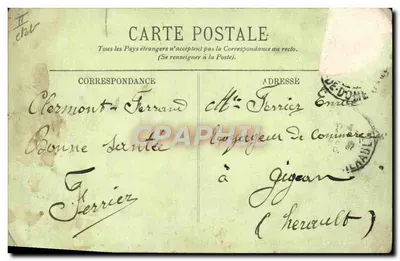 CARTE POSTALE
Tous les Pays étrangers n'acceptent pas la Correspondance au recto.
(Se renseigner à la Poste).
CORRESPONDANCE
ADRESSE
Clermont-Ferrand
Bonne santée
Ferrier
Mr Ferrier Emile
Voyageur de Commerce
à Gigean
(herault)
DE-DOME
HERAULT
CPAPHIL